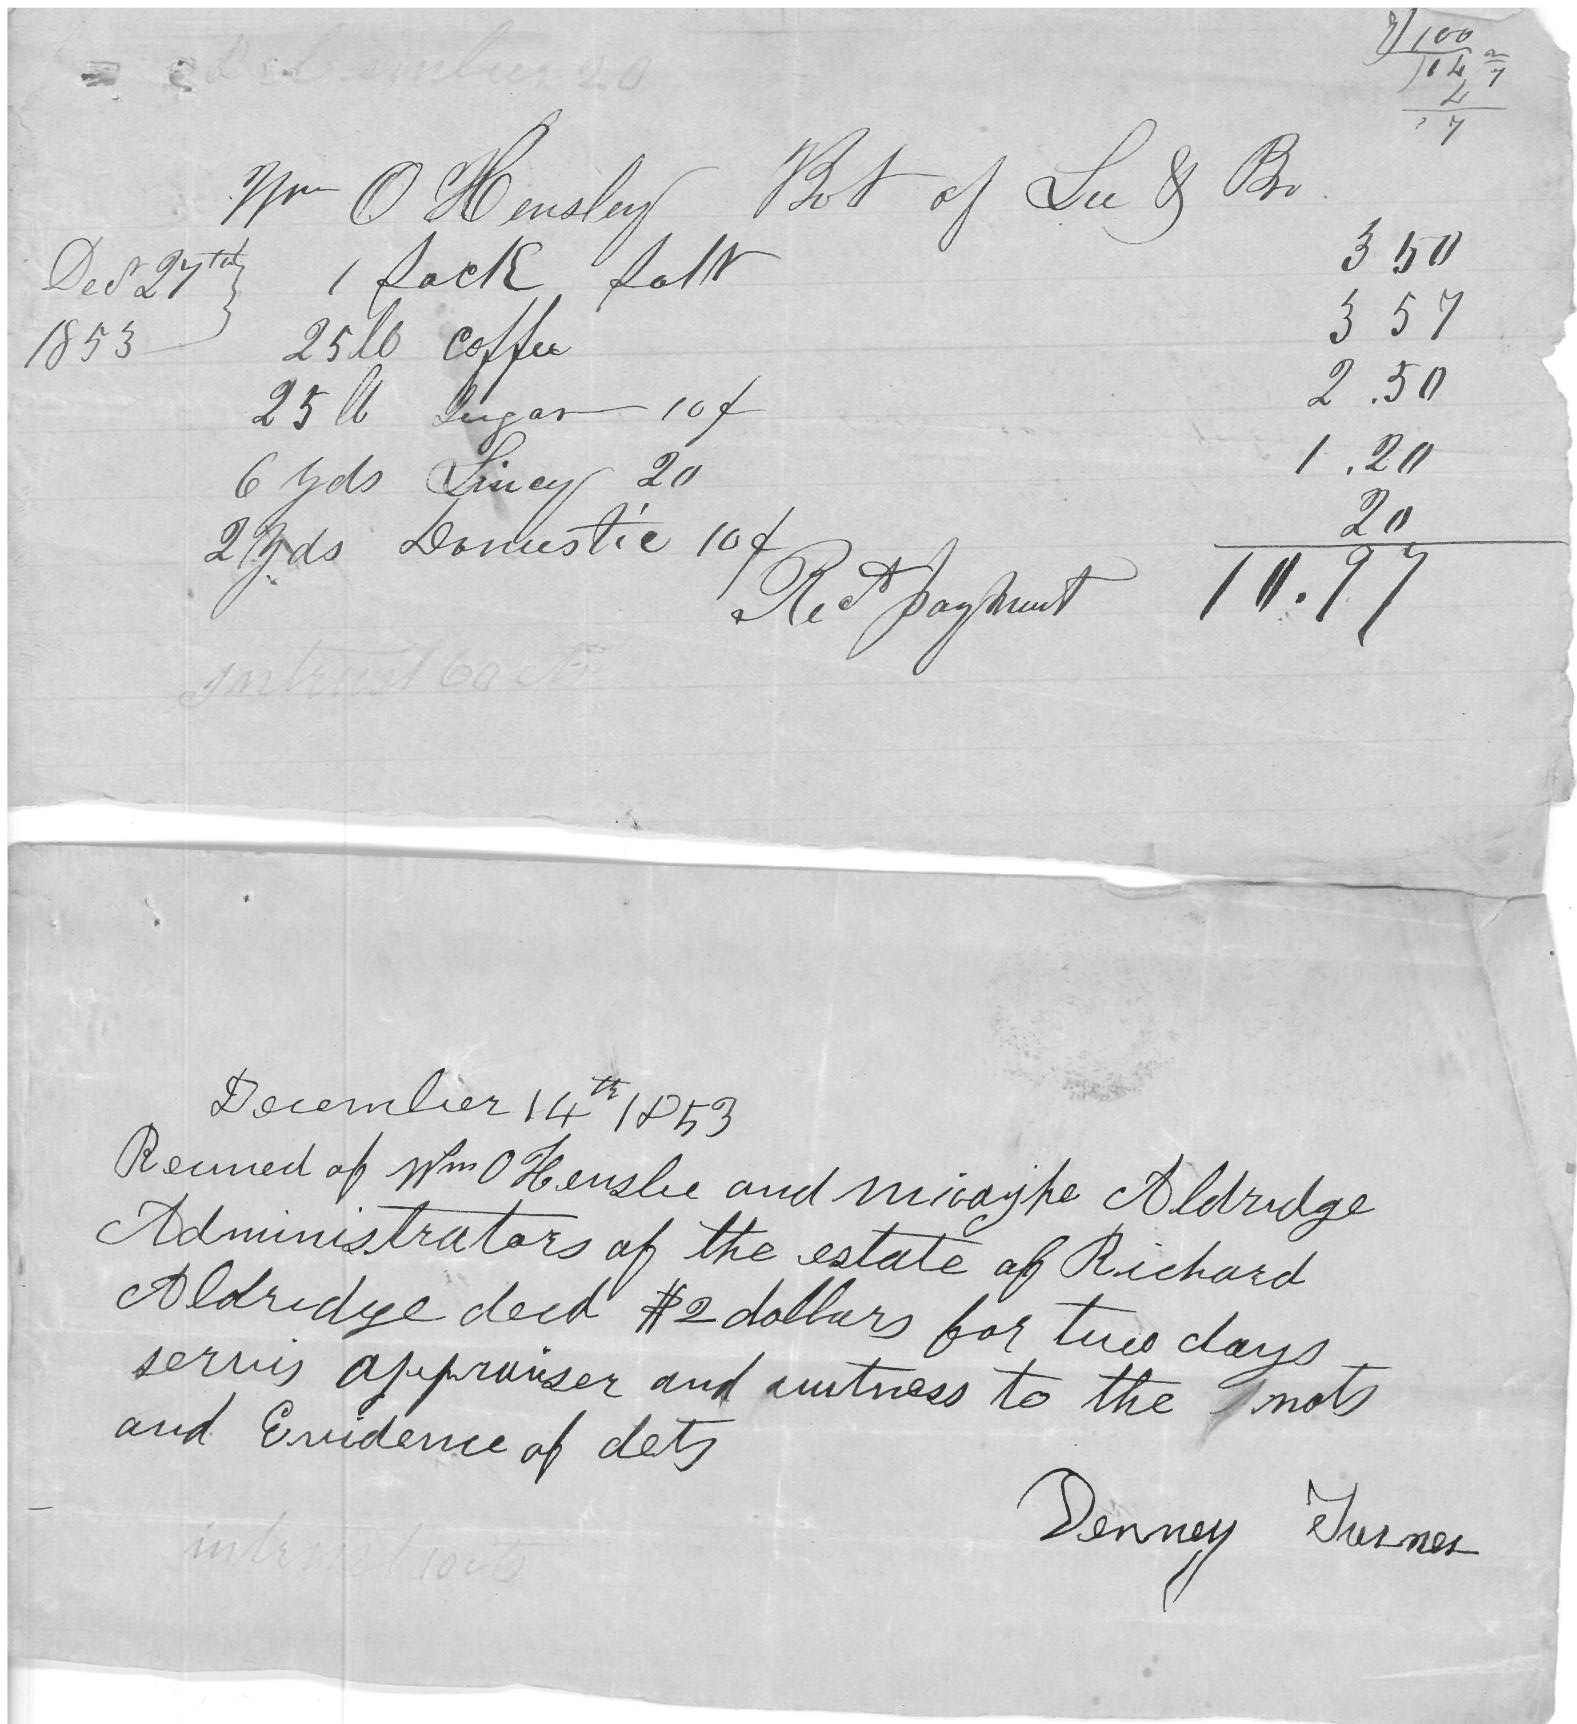 December 20
7) 100
14 2/7
Wm O Hensley Bot of Lee & Bro
Dec 27th 1 sack salt 3 50
1853 25 lb coffee 3 57
25 lb sugar 10¢ 2.50
6 yds Lincy 20 1.20
2 yds Domestic 10¢ 20
Rect payment 10.97
intrust 60 cts
December 14th 1853
Received of Wm O Henslee and micajhe Aldridge
Administrators of the estate of Richard
Aldridge decd $2 dollars for two days
servis appraiser and witness to the nots
and Evidence of dets
Denney Turner
intrust 10 cts